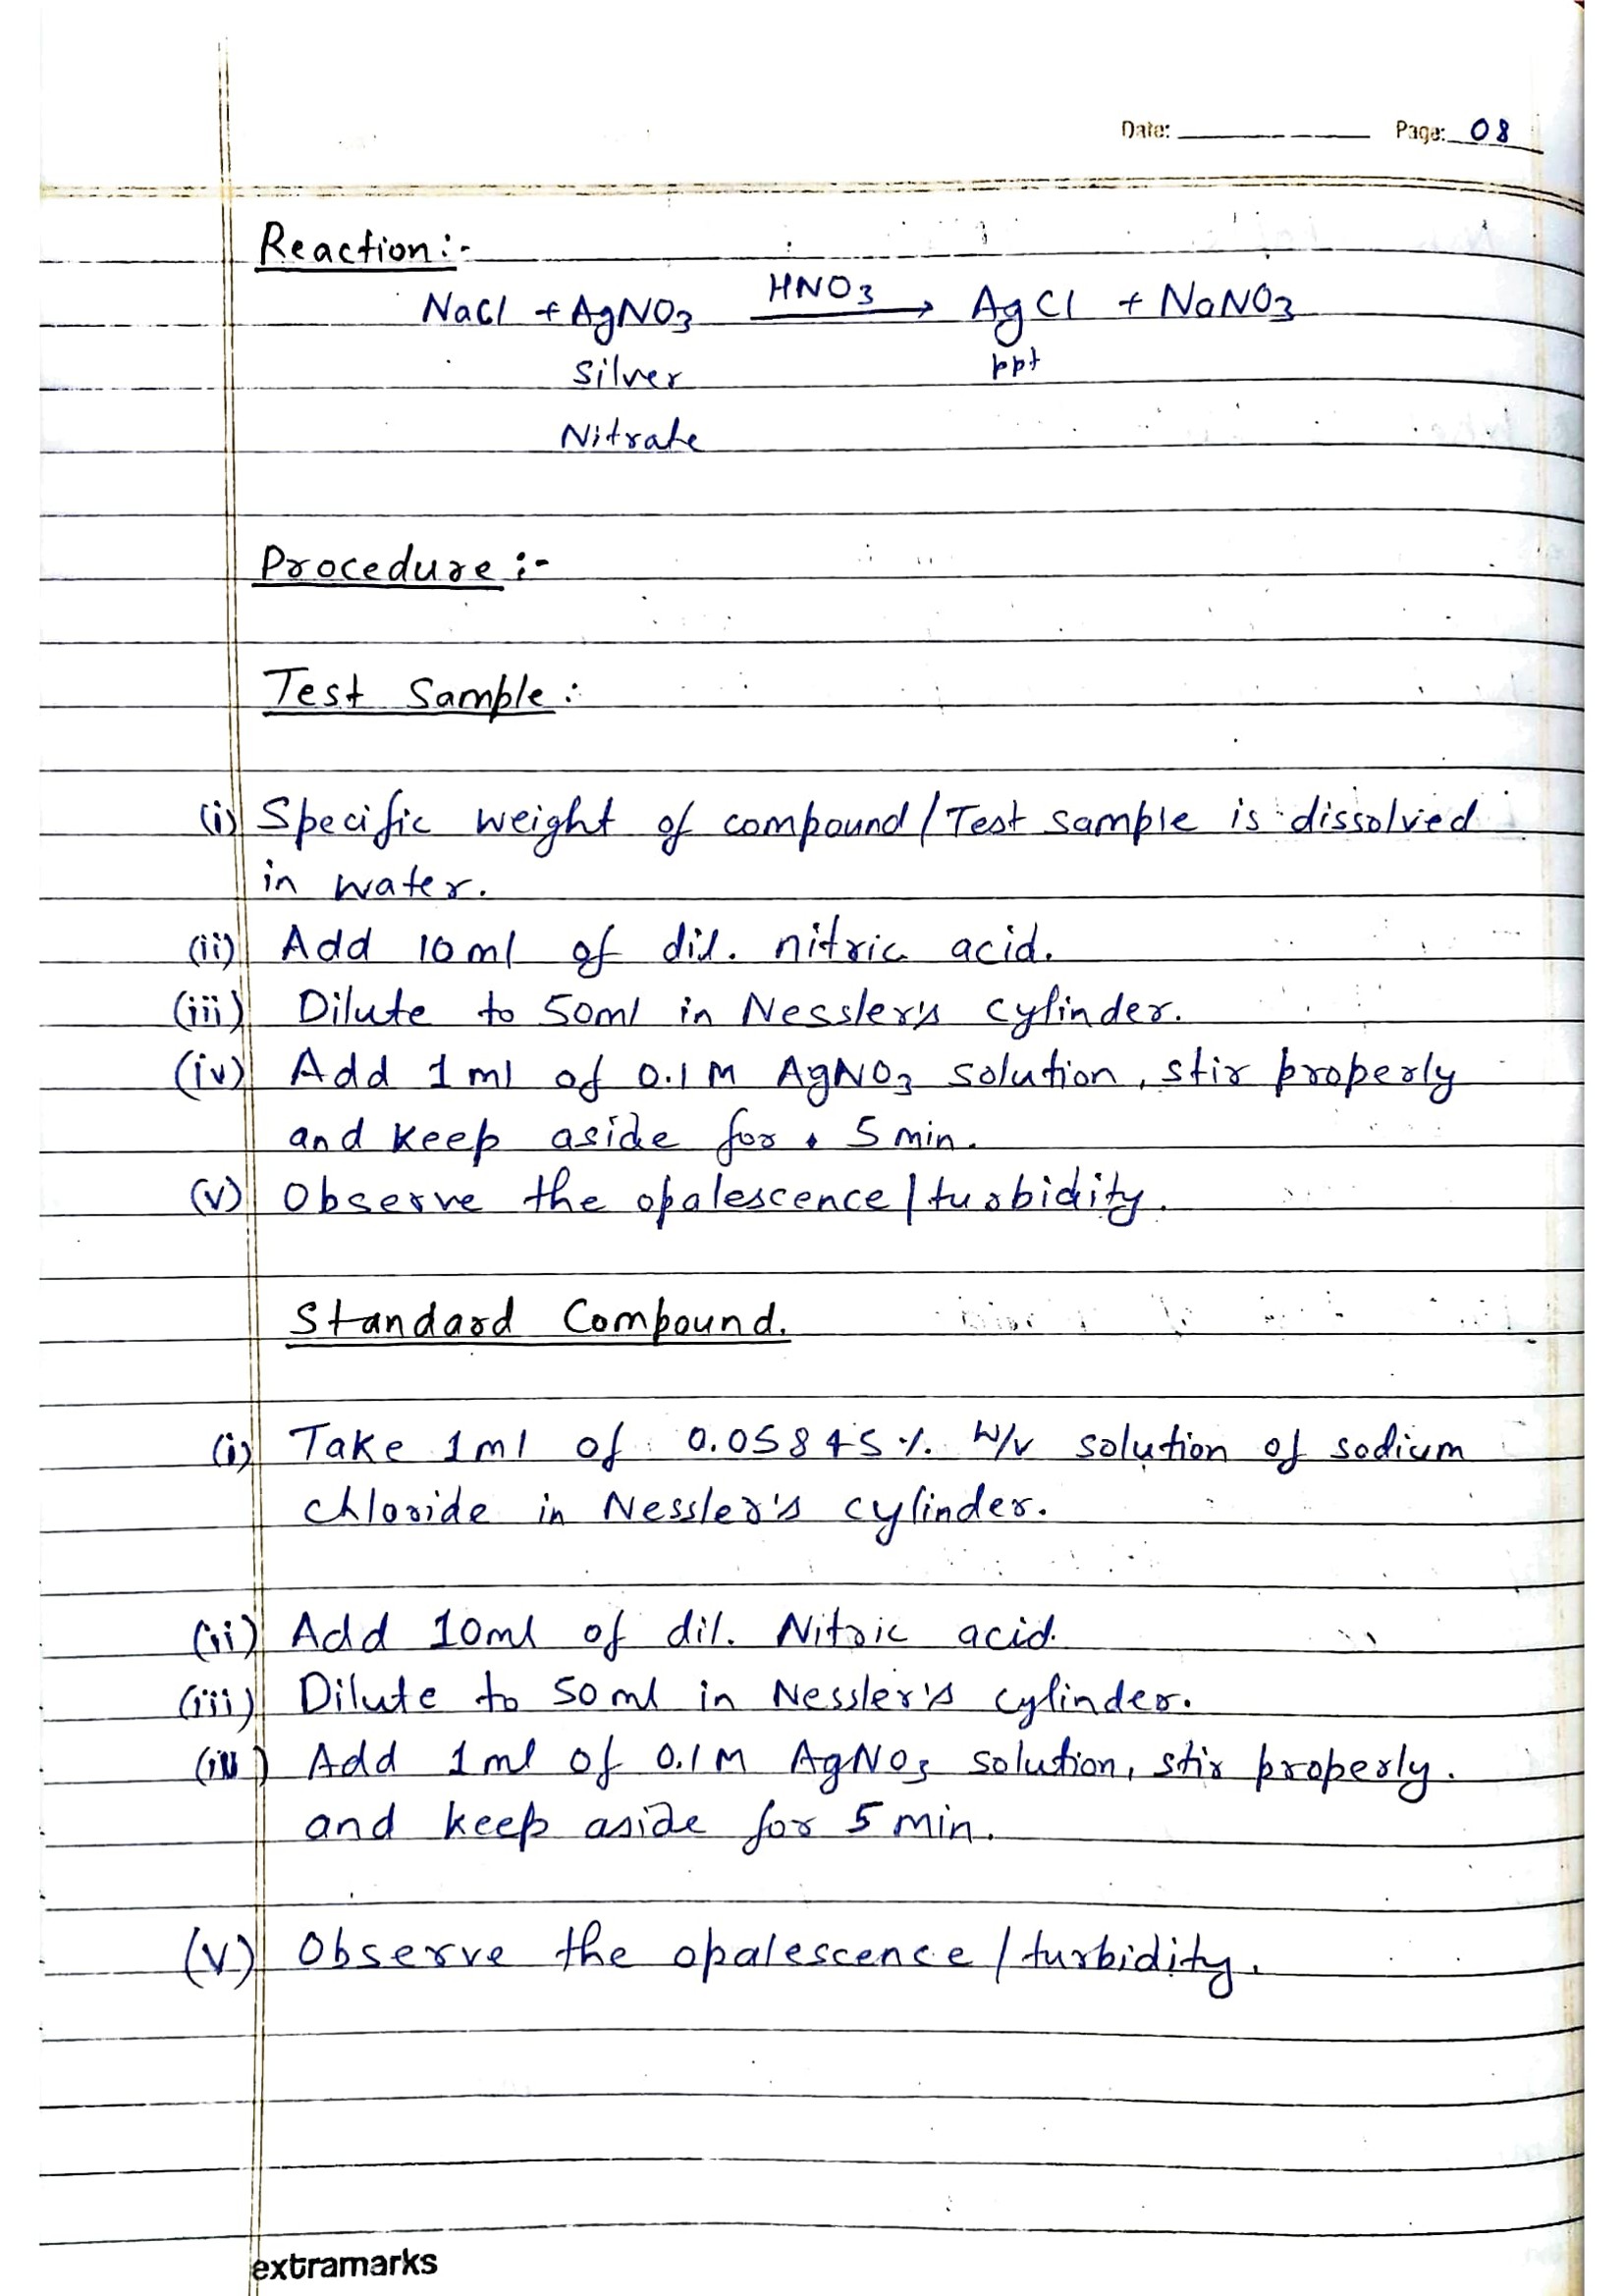 Date: Page: 08
Reaction :-
NaCl + AgNO3 HNO3 → AgCl + NaNO3
Silver ppt
Nitrate
Procedure :-
Test Sample :
(i) Specific weight of compound / Test sample is dissolved
in water.
(ii) Add 10 ml of dil. nitric acid.
(iii) Dilute to 50ml in Nessler's cylinder.
(iv) Add 1 ml of 0.1 M AgNO3 solution, stir properly
and keep aside for 5 min.
(v) Observe the opalescence / turbidity.
Standard Compound.
(i) Take 1 ml of 0.05845 % w/v solution of sodium
chloride in Nessler's cylinder.
(ii) Add 10ml of dil. Nitric acid.
(iii) Dilute to 50 ml in Nessler's cylinder.
(iv) Add 1 ml of 0.1 M AgNO3 solution, stir properly.
and keep aside for 5 min.
(v) Observe the opalescence / turbidity.
extramarks